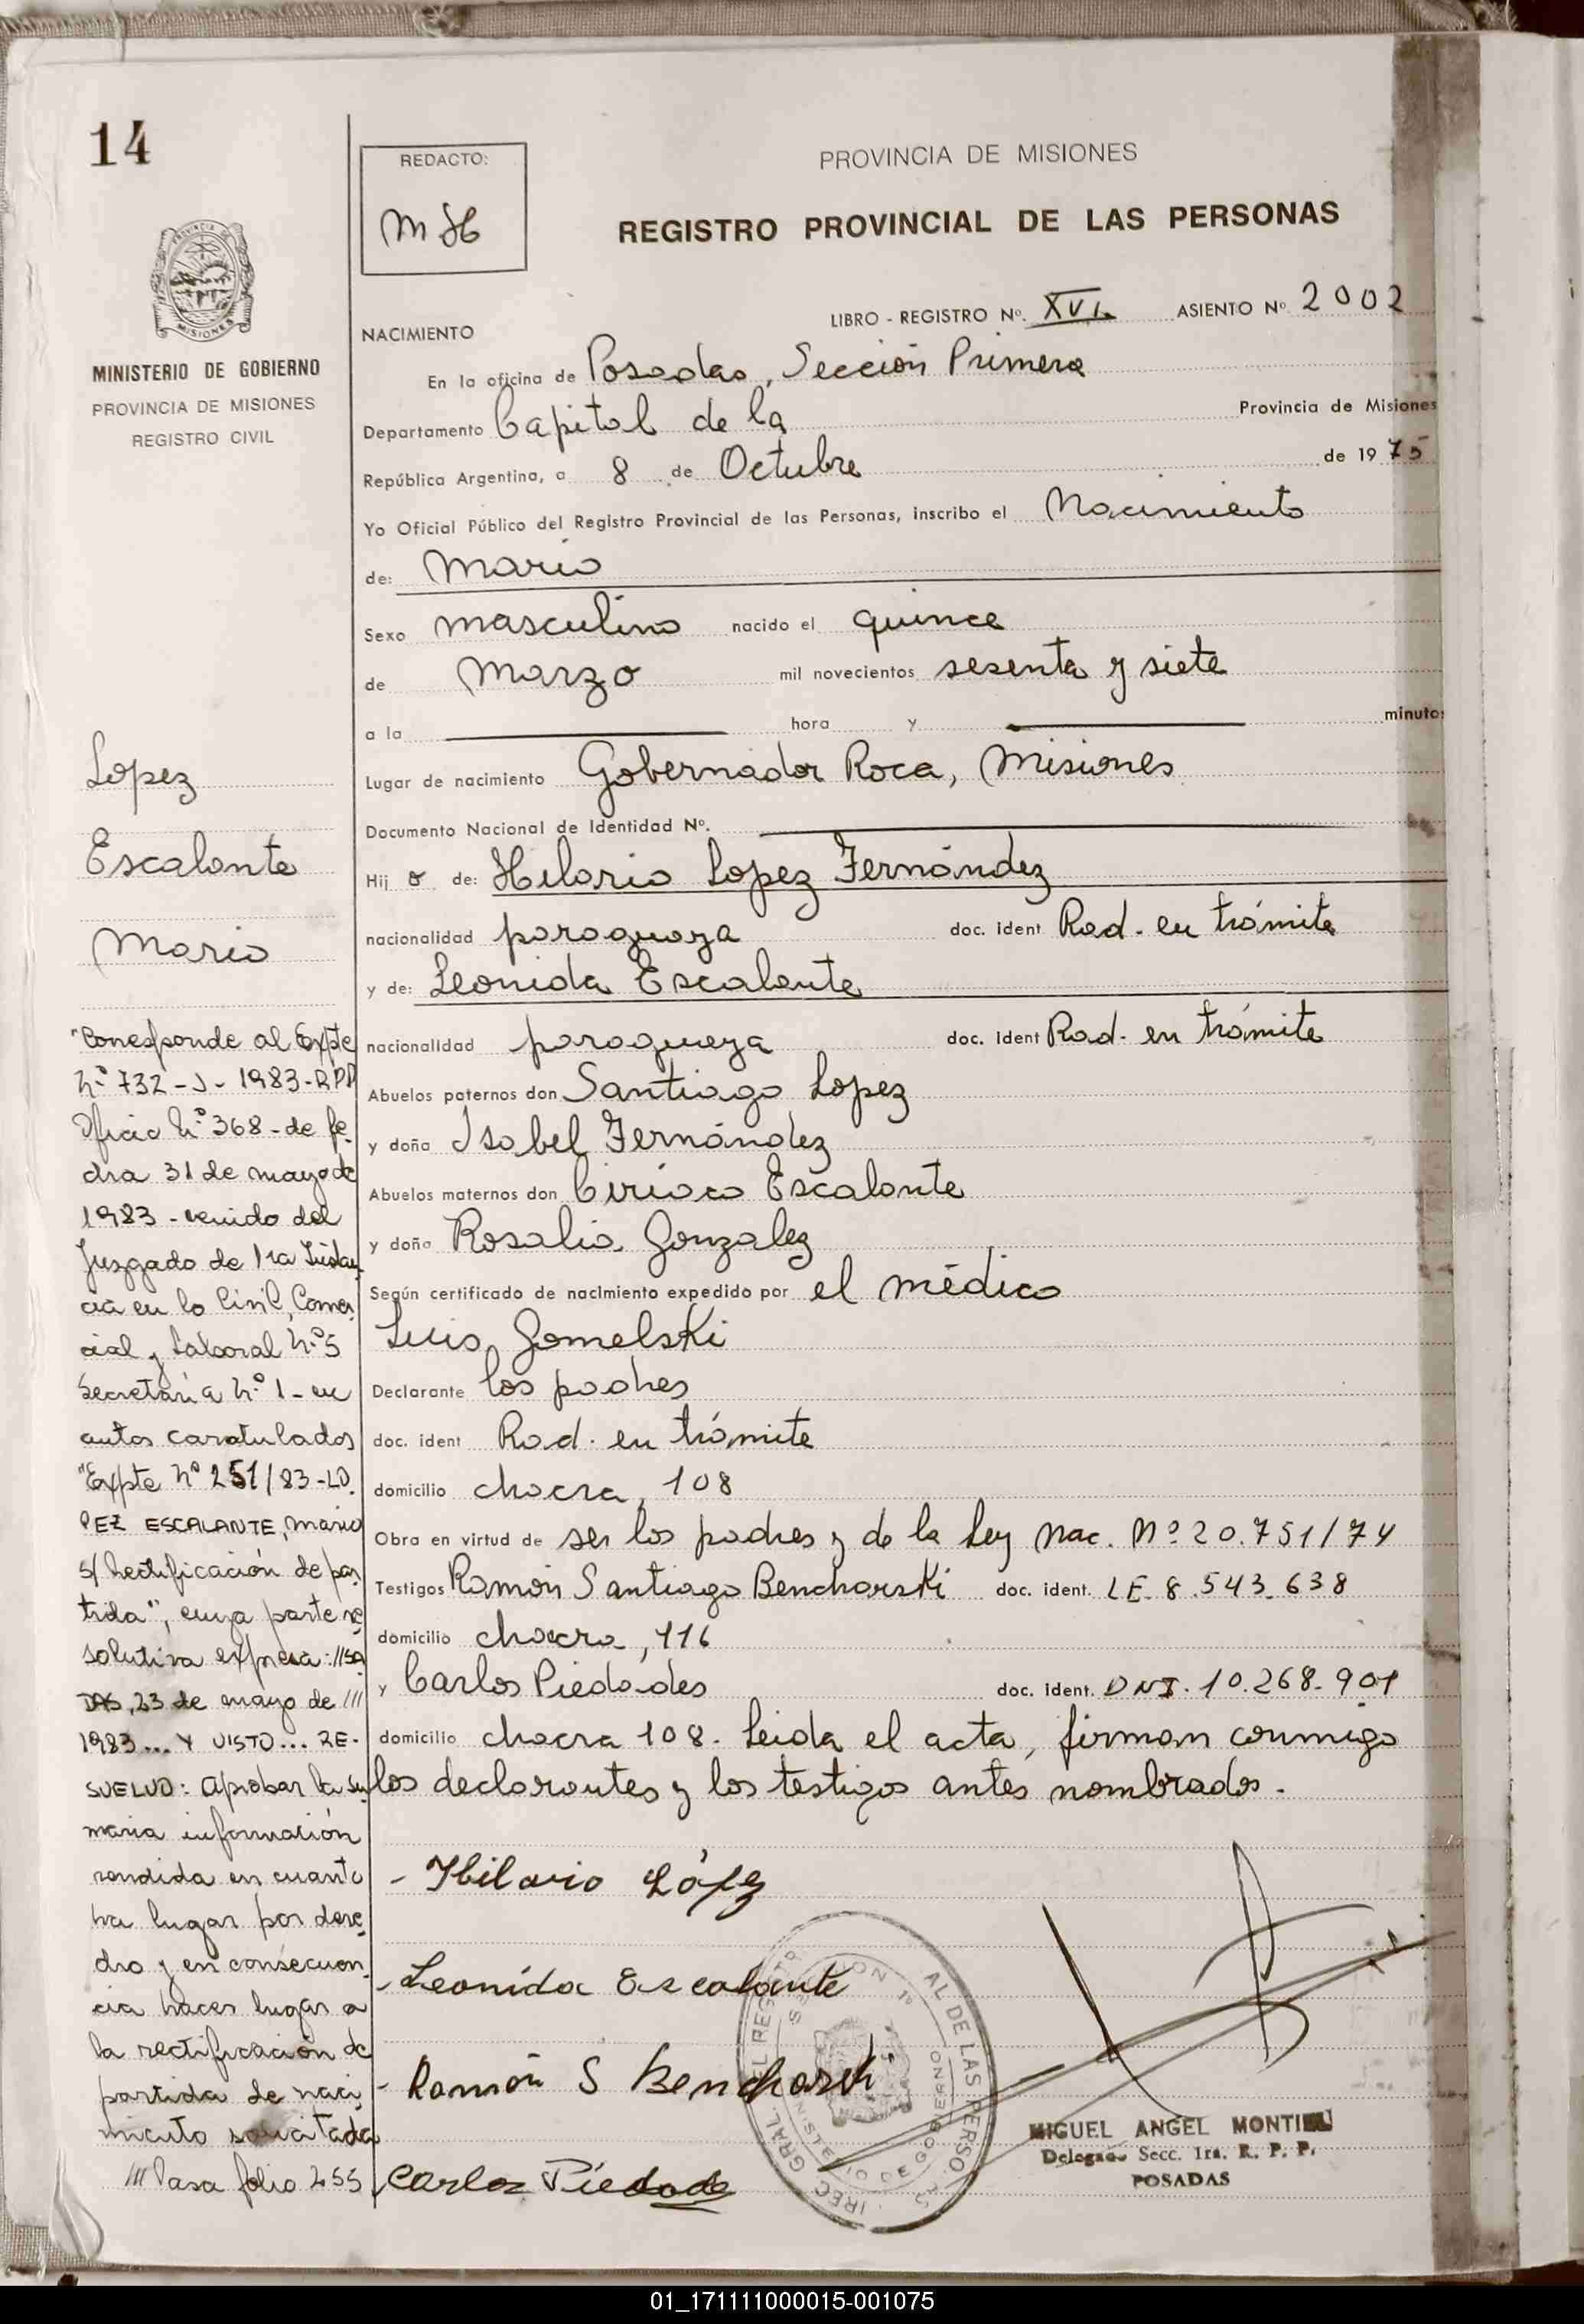 14
REDACTO:
MH
PROVINCIA DE MISIONES
REGISTRO PROVINCIAL DE LAS PERSONAS
PROVINCIA DE
MISIONES
MINISTERIO DE GOBIERNO
PROVINCIA DE MISIONES
REGISTRO CIVIL
LIBRO - REGISTRO Nº. XVI. ASIENTO Nº 2002
NACIMIENTO
En la oficina de Posadas, Sección Primera
Departamento Capital de la Provincia de Misiones
República Argentina, a 8 de Octubre de 1975
Yo Oficial Público del Registro Provincial de las Personas, inscribo el Nacimiento
de: Mario
Sexo masculino nacido el quince
de Marzo mil novecientos sesenta y siete
a la hora y minutos
Lugar de nacimiento Gobernador Roca, Misiones
Documento Nacional de Identidad Nº.
Hijo de: Hilario Lopez Fernández
nacionalidad paraguaya doc. ident Rad. en trámite
y de: Leonida Escalante
nacionalidad paraguaya doc. ident Rad. en trámite
Abuelos paternos don Santiago Lopez
y doña Isabel Fernández
Abuelos maternos don Ciriaco Escalante
y doña Rosalia Gonzalez
Según certificado de nacimiento expedido por el médico
Luis Gomelski
Declarante los padres
doc. ident Rad. en trámite
domicilio chacra, 108
Obra en virtud de ser los padres y de la Ley Nac. Nº 20.751/74
Testigos Ramón Santiago Bencharski doc. ident. LE. 8.543.638
domicilio chacra, 116
y Carlos Piedades doc. ident. DNI. 10.268.901
domicilio chacra 108. Leida el acta, firman conmigo
los declarantes y los testigos antes nombrados.
- Hilario López
- Leonida Escalante
- Ramón S Bencharski
Carlos Piedade
MIGUEL ANGEL MONTIEL
Delegado Secc. 1ra. R. P. P.
POSADAS
Lopez
Escalante
Mario
"Corresponde al Expte
Nº 732-J-1983-RPP
Oficio Nº 368-de fe
cha 31 de mayo de
1983-venido del
Juzgado de 1ra Instan
cia en lo Civil, Comer
cial y Laboral Nº 5
Secretaría Nº 1-en
autos caratulados
"Expte Nº 251/83-LO
PEZ ESCALANTE, Mario
s/ Rectificación de par
tida", cuya parte re
solutiva expresa: //SA
DAS, 23 de mayo de ///
1983... Y VISTO... RE-
SUELVO: Aprobar la su
maria información
rendida en cuanto
ha lugar por dere
cho y en consecuen
cia hacer lugar a
la rectificación de
partida de naci
miento solicitada
/// Pasa folio 255
01_171111000015-001075